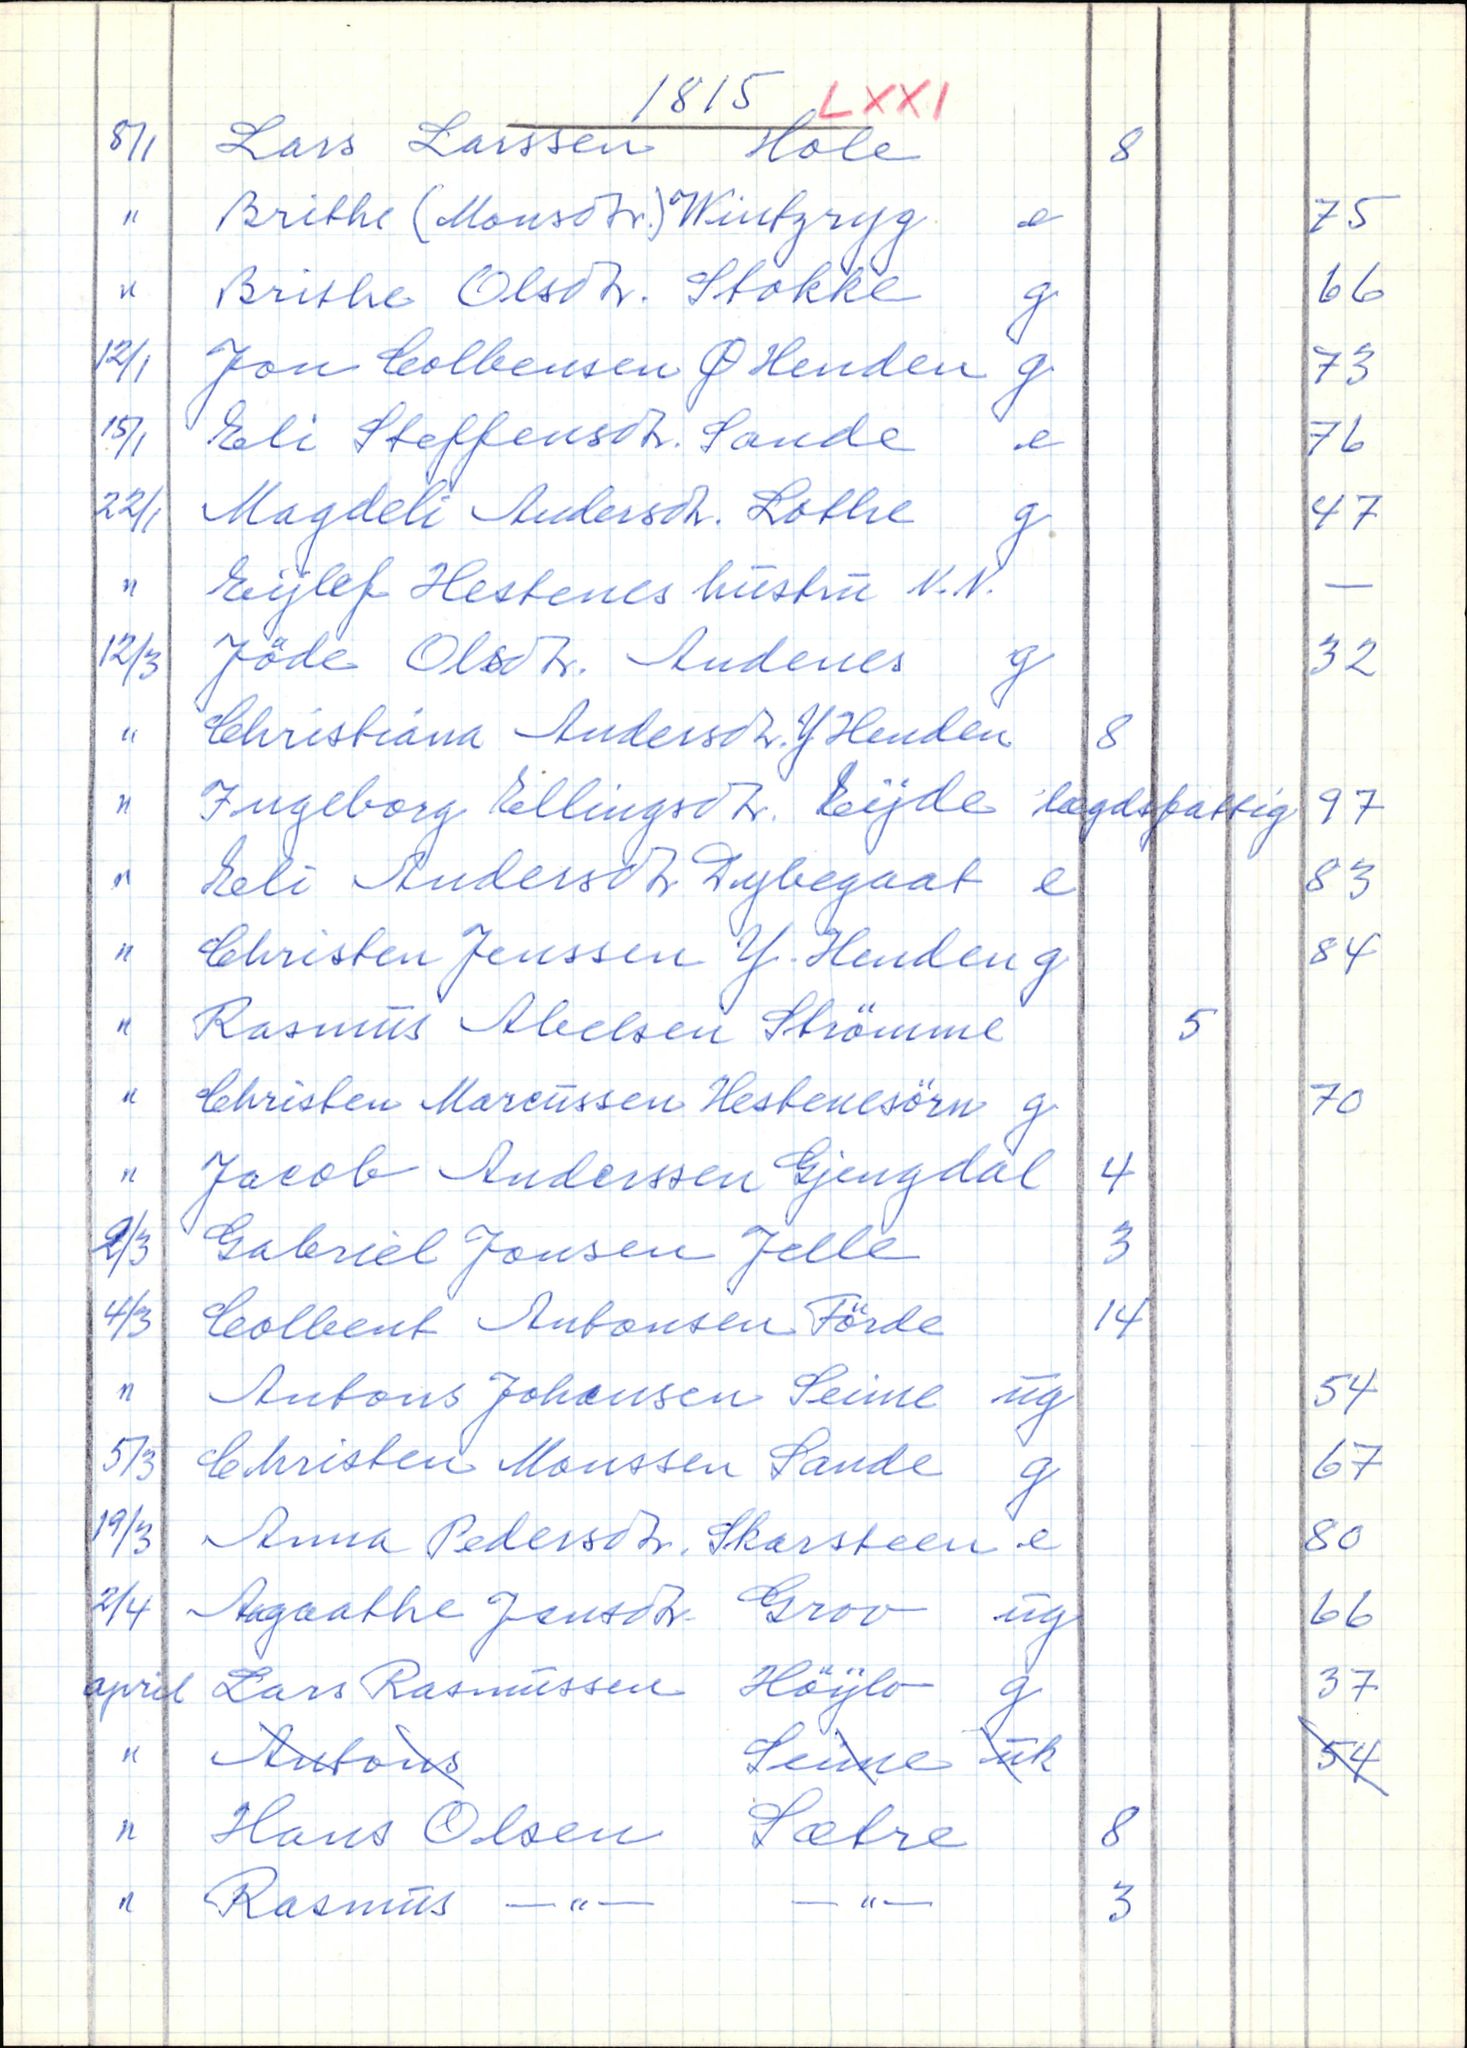 1815 LXXI
8/1 Lars Larssen Hole 8
" Brithe (Monsdtr.) Wintzryg e 75
" Brithe Olsdtr. Stokke g 66
12/1 Jon Colbensen Ø Henden g 73
15/1 Eli Steffensdtr. Sande e 76
22/1 Magdeli Andersdtr. Lothe g 47
" Eÿlef Hestenes hustru N.N. —
12/3 Jöde Olsdtr. Andenes g 32
" Christiana Andersdtr. Y Henden 8
" Ingeborg Ellingsdtr. Eÿde lægdsfattig 97
" Eli Andersdtr Dybegaat e 83
" Christen Jenssen Y. Henden g 84
" Rasmus Abelsen Strömme 5
" Christen Marcussen Hestenesörn g 70
" Jacob Anderssen Gjengdal 4
2/3 Gabriel Jonsen Jelle 3
4/3 Colbent Antonsen Förde 14
" Antons Johansen Seime ug 54
5/3 Christen Monssen Sande g 67
19/3 Anna Pedersdtr. Skarsteen e 80
2/4 Aagaathe Jensdtr. Grov ug 66
april Lars Rasmussen Höÿlo g 37
" Antons Seime uk 54
" Hans Olsen Sætre 8
" Rasmus —"— —"— 3